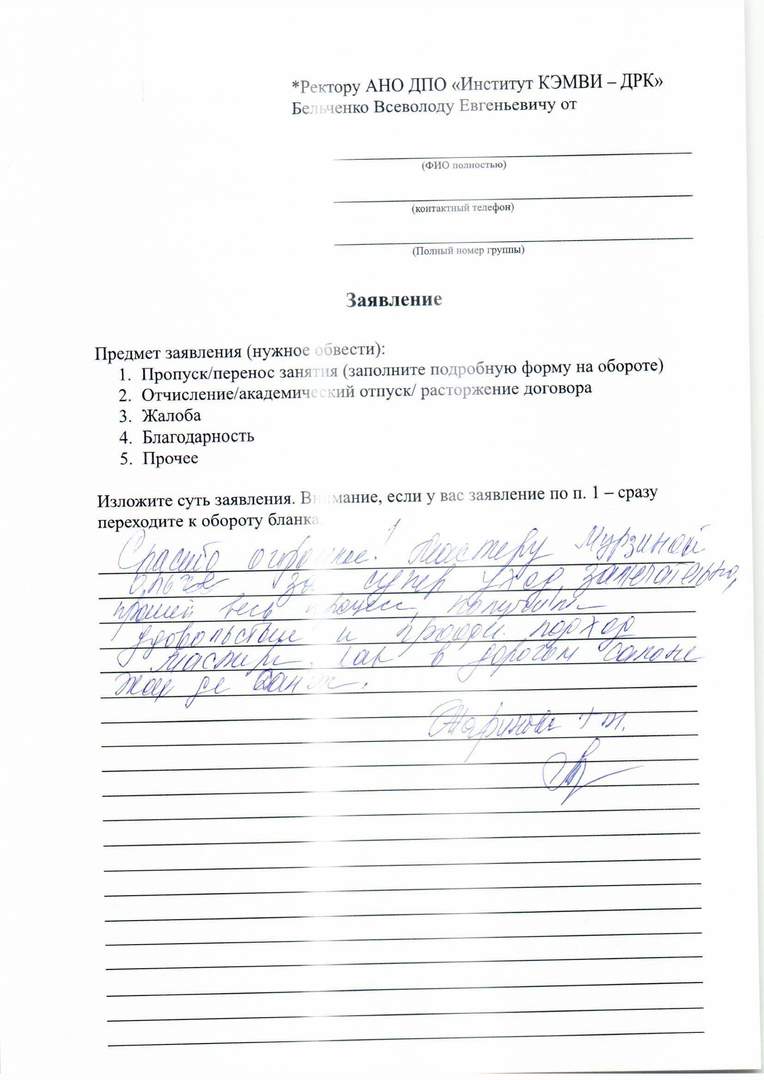 *Ректору АНО ДПО «Институт КЭМВИ – ДРК»
Бельченко Всеволоду Евгеньевичу от
(ФИО полностью)
(контактный телефон)
(Полный номер группы)
Заявление
Предмет заявления (нужное обвести):
1. Пропуск/перенос занятия (заполните подробную форму на обороте)
2. Отчисление/академический отпуск/ расторжение договора
3. Жалоба
4. Благодарность
5. Прочее
Изложите суть заявления. Внимание, если у вас заявление по п. 1 – сразу
переходите к обороту бланка.
Спасибо огромное! Мастеру Мурзиной
Ольге за супер уход, замечательно,
весь процесс
удовольствие и подход
мастера, как в дорогом салоне
Жак де